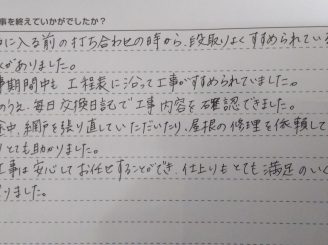 事を終えていかがでしたか?
に入る前の打ち合わせの時から、段取りよくすすめられている
がありました。
期間中も工程表に沿って工事がすすめられていました。
のうえ、毎日交換日記で工事内容を確認できました。
中、網戸を張り直していただいたり、屋根の修理を依頼して
とても助かりました。
工事は安心してお任せすることができ、仕上りもとても満足のいく
りました。